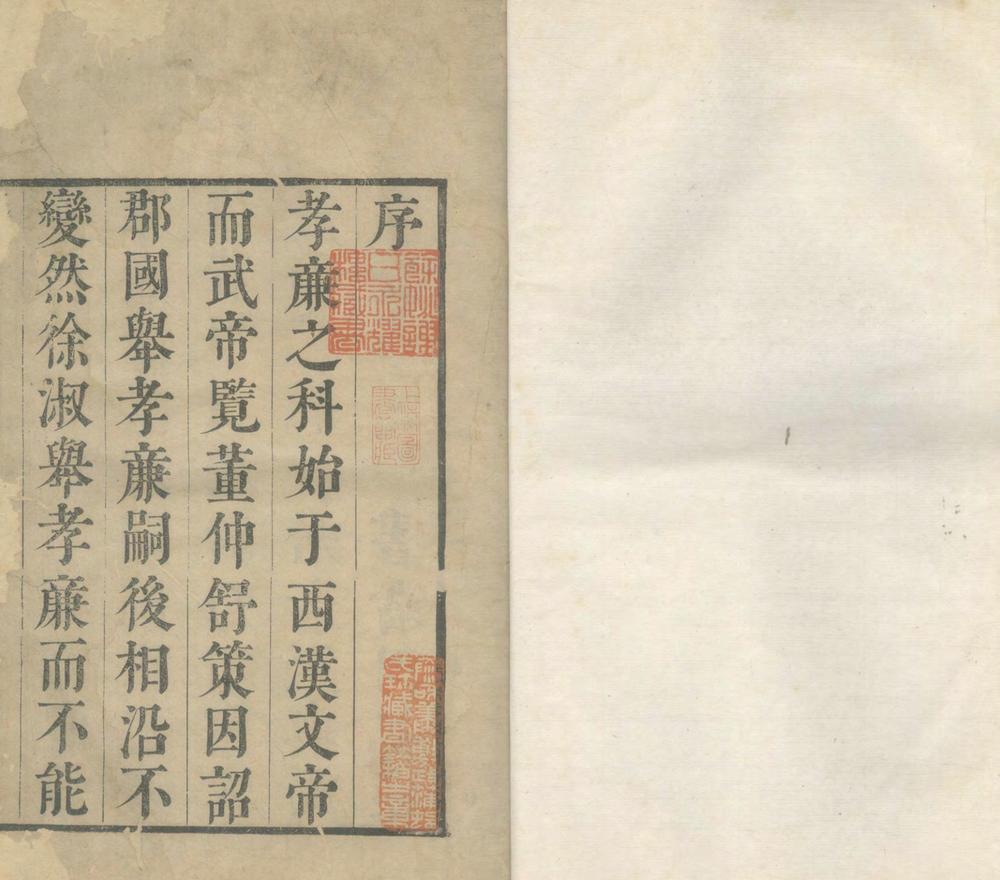 序
孝廉之科始于西漢文帝
而武帝覽董仲舒策因詔
郡國舉孝廉嗣後相沿不
變然徐淑舉孝廉而不能